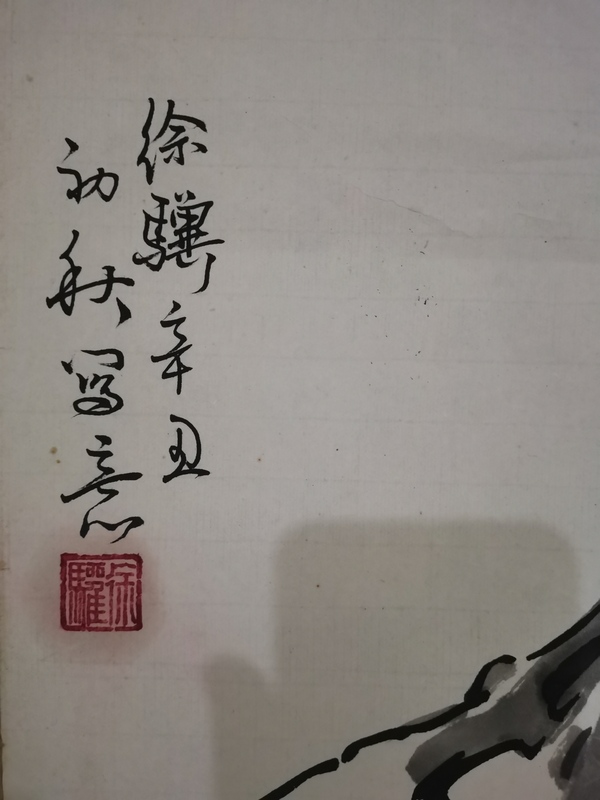 徐 辛丑
初秋寫意
徐